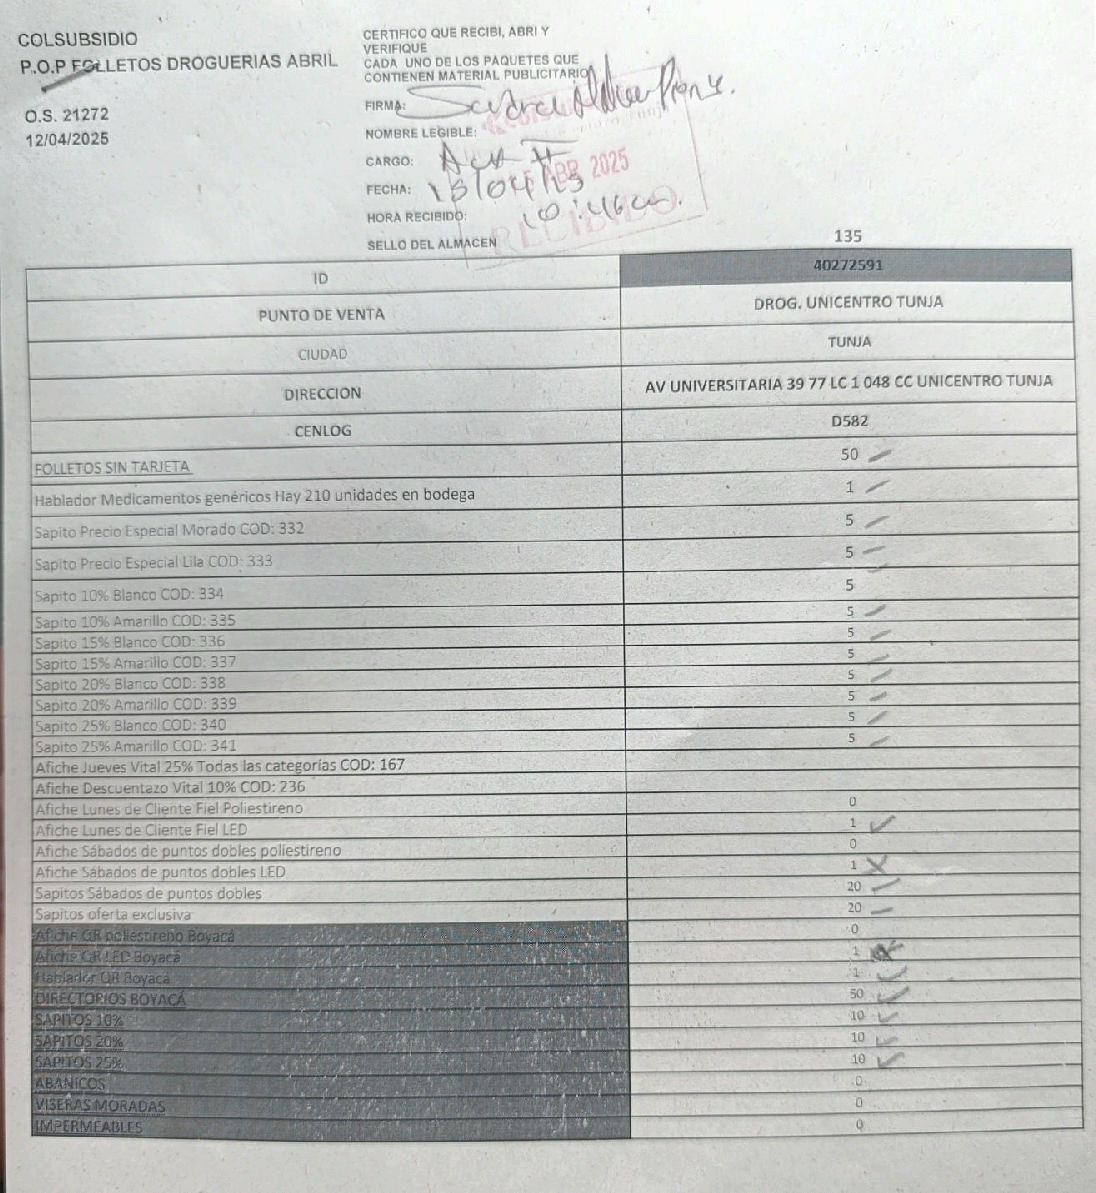 COLSUBSIDIO
P.O.P FOLLETOS DROGUERIAS ABRIL
O.S. 21272
12/04/2025
CERTIFICO QUE RECIBI, ABRI Y
VERIFIQUE
CADA UNO DE LOS PAQUETES QUE
CONTIENEN MATERIAL PUBLICITARIO
FIRMA:
NOMBRE LEGIBLE:
CARGO:
FECHA:
ABR 2025
HORA RECIBIDO:
RECIBIDO
SELLO DEL ALMACEN
135
ID 40272591
PUNTO DE VENTA DROG. UNICENTRO TUNJA
CIUDAD TUNJA
DIRECCION AV UNIVERSITARIA 39 77 LC 1 048 CC UNICENTRO TUNJA
CENLOG D582
FOLLETOS SIN TARJETA 50
Hablador Medicamentos genéricos Hay 210 unidades en bodega 1
Sapito Precio Especial Morado COD: 332 5
Sapito Precio Especial Lila COD: 333 5
Sapito 10% Blanco COD: 334 5
Sapito 10% Amarillo COD: 335 5
Sapito 15% Blanco COD: 336 5
Sapito 15% Amarillo COD: 337 5
Sapito 20% Blanco COD: 338 5
Sapito 20% Amarillo COD: 339 5
Sapito 25% Blanco COD: 340 5
Sapito 25% Amarillo COD: 341 5
Afiche Jueves Vital 25% Todas las categorías COD: 167
Afiche Descuentazo Vital 10% COD: 236
Afiche Lunes de Cliente Fiel Poliestireno 0
Afiche Lunes de Cliente Fiel LED 1
Afiche Sábados de puntos dobles poliestireno 0
Afiche Sábados de puntos dobles LED 1
Sapitos Sábados de puntos dobles 20
Sapitos oferta exclusiva 20
Afiche QR poliestireno Boyacá 0
Afiche QR LED Boyacá 1
Hablador QR Boyacá 1
DIRECTORIOS BOYACÁ 50
SAPITOS 10% 10
SAPITOS 20% 10
SAPITOS 25% 10
ABANICOS 0
VISERAS MORADAS 0
IMPERMEABLES 0